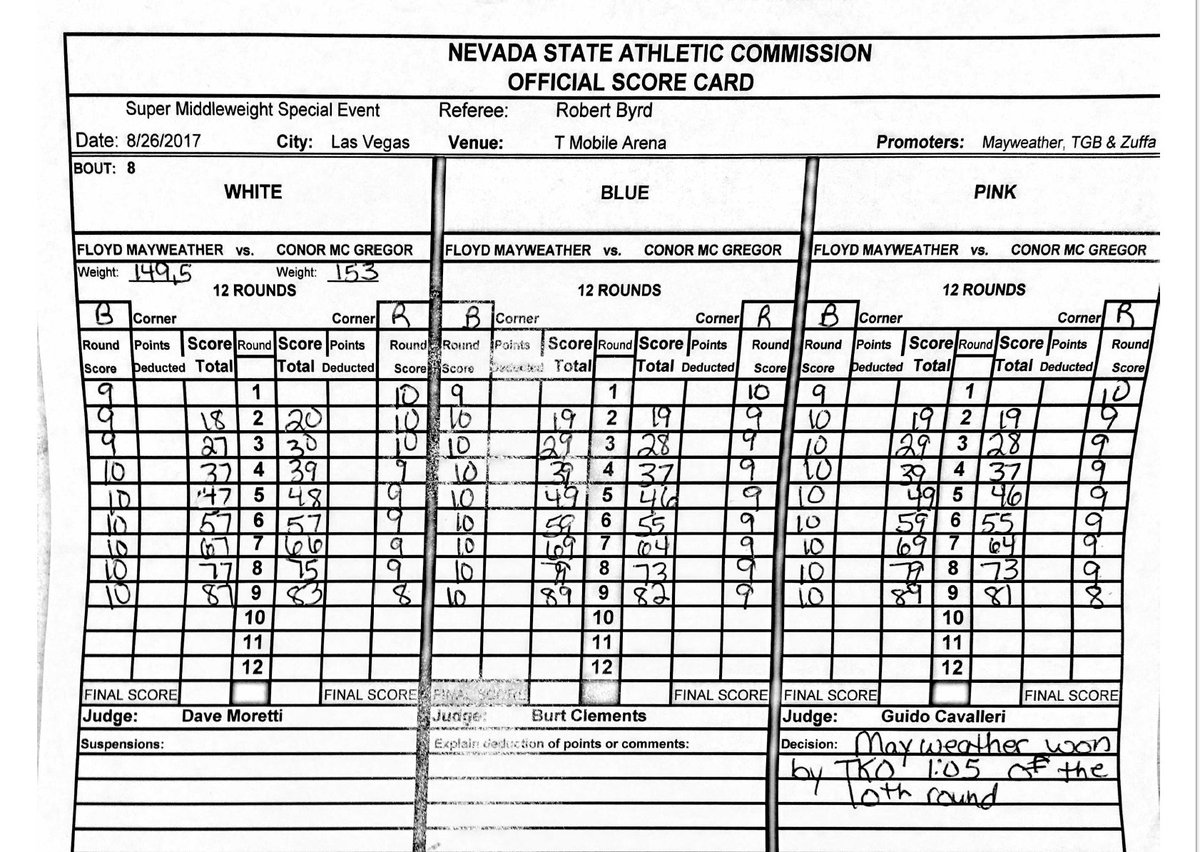 NEVADA STATE ATHLETIC COMMISSION
OFFICIAL SCORE CARD
Super Middleweight Special Event Referee: Robert Byrd
Date: 8/26/2017 City: Las Vegas Venue: T Mobile Arena Promoters: Mayweather, TGB & Zuffa
BOUT: 8
WHITE BLUE PINK
FLOYD MAYWEATHER vs. CONOR MC GREGOR FLOYD MAYWEATHER vs. CONOR MC GREGOR FLOYD MAYWEATHER vs. CONOR MC GREGOR
Weight: 149,5 Weight: 153
12 ROUNDS 12 ROUNDS 12 ROUNDS
B Corner Corner R B Corner Corner R B Corner Corner R
Round Points Score Round Score Points Round Round Points Score Round Score Points Round Round Points Score Round Score Points Round
Score Deducted Total Total Deducted Score Score Deducted Total Total Deducted Score Score Deducted Total Total Deducted Score
9 1 10 9 1 10 9 1 10
9 18 2 20 10 10 19 2 19 9 10 19 2 19 9
9 27 3 30 10 10 29 3 28 9 10 29 3 28 9
10 37 4 39 9 10 39 4 37 9 10 39 4 37 9
10 47 5 48 9 10 49 5 46 9 10 49 5 46 9
10 57 6 57 9 10 59 6 55 9 10 59 6 55 9
10 67 7 66 9 10 69 7 64 9 10 69 7 64 9
10 77 8 75 9 10 79 8 73 9 10 79 8 73 9
10 87 9 83 8 10 89 9 82 9 10 89 9 81 8
10 10 10
11 11 11
12 12 12
FINAL SCORE FINAL SCORE FINAL SCORE FINAL SCORE FINAL SCORE FINAL SCORE
Judge: Dave Moretti Judge: Burt Clements Judge: Guido Cavalleri
Suspensions: Explain deduction of points or comments: Decision: Mayweather won
by TKO 1:05 of the
10th round